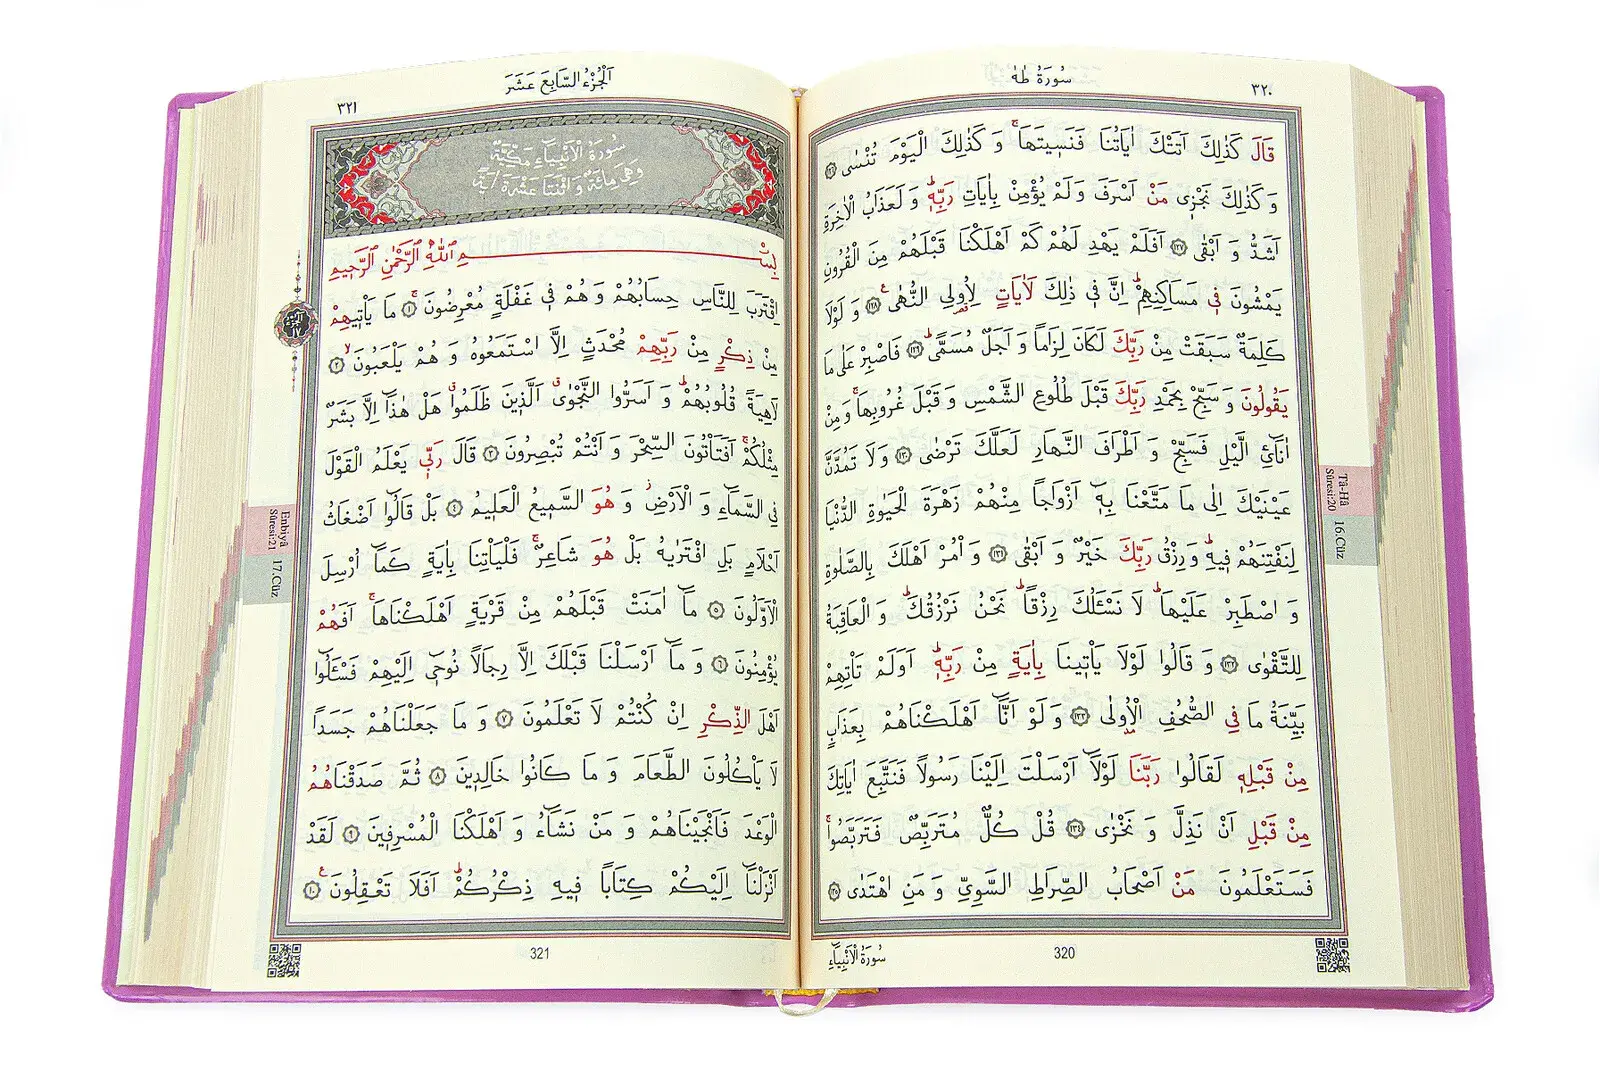 سُورَةُ طٰهٰ
٣٢٠
قَالَ كَذٰلِكَ اَتَتْكَ اٰيَاتُنَا فَنَسٖيتَهَاۚ وَ كَذٰلِكَ الْيَوْمَ تُنْسٰى ﴿١٢٦﴾
وَ كَذٰلِكَ نَجْزٖى مَنْ اَسْرَفَ وَ لَمْ يُؤْمِنْ بِاٰيَاتِ رَبِّهٖؕ وَ لَعَذَابُ الْاٰخِرَةِ
اَشَدُّ وَ اَبْقٰى ﴿١٢٧﴾ اَفَلَمْ يَهْدِ لَهُمْ كَمْ اَهْلَكْنَا قَبْلَهُمْ مِنَ الْقُرُونِ
يَمْشُونَ فٖى مَسَاكِنِهِمْؕ اِنَّ فٖى ذٰلِكَ لَاٰيَاتٍ لِاُولِى النُّهٰىࣖ ﴿١٢٨﴾ وَ لَوْلَا
كَلِمَةٌ سَبَقَتْ مِنْ رَبِّكَ لَكَانَ لِزَاماً وَ اَجَلٌ مُسَمًّىؕ ﴿١٢٩﴾ فَاصْبِرْ عَلٰى مَا
يَقُولُونَ وَ سَبِّحْ بِحَمْدِ رَبِّكَ قَبْلَ طُلُوعِ الشَّمْسِ وَ قَبْلَ غُرُوبِهَاۚ وَ مِنْ
اٰنَٓائِ الَّيْلِ فَسَبِّحْ وَ اَطْرَافَ النَّهَارِ لَعَلَّكَ تَرْضٰى ﴿١٣٠﴾ وَ لَا تَمُدَّنَّ
عَيْنَيْكَ اِلٰى مَا مَتَّعْنَا بِهٖٓ اَزْوَاجاً مِنْهُمْ زَهْرَةَ الْحَيٰوةِ الدُّنْيَا
لِنَفْتِنَهُمْ فٖيهِؕ وَ رِزْقُ رَبِّكَ خَيْرٌ وَ اَبْقٰى ﴿١٣١﴾ وَ اْمُرْ اَهْلَكَ بِالصَّلٰوةِ
وَ اصْطَبِرْ عَلَيْهَاؕ لَا نَسْـَٔلُكَ رِزْقاًؕ نَحْنُ نَرْزُقُكَؕ وَ الْعَاقِبَةُ
لِلتَّقْوٰى ﴿١٣٢﴾ وَ قَالُوا لَوْلَا يَاْتٖينَا بِاٰيَةٍ مِنْ رَبِّهٖؕ اَوَلَمْ تَاْتِهِمْ
بَيِّنَةُ مَا فِى الصُّحُفِ الْاُولٰى ﴿١٣٣﴾ وَ لَوْ اَنَّٓا اَهْلَكْنَاهُمْ بِعَذَابٍ
مِنْ قَبْلِهٖ لَقَالُوا رَبَّنَا لَوْلَٓا اَرْسَلْتَ اِلَيْنَا رَسُولاً فَنَتَّبِعَ اٰيَاتِكَ
مِنْ قَبْلِ اَنْ نَذِلَّ وَ نَخْزٰى ﴿١٣٤﴾ قُلْ كُلٌّ مُتَرَبِّصٌ فَتَرَبَّصُواۚ
فَسَتَعْلَمُونَ مَنْ اَصْحَابُ الصِّرَاطِ السَّوِىِّ وَ مَنِ اهْتَدٰى ﴿١٣٥﴾
Tâ-Hâ
Sûresi:20
16.Cüz
320
سُورَةُ الْاَنْبِيَٓاءِ
اَلْجُزْءُ السَّابِعَ عَشَرَ
٣٢١
سُورَةُ الْاَنْبِيَٓاءِ مَكِّيَّةٌ
وَهِىَ مِائَةٌ وَ اثْنَتَا عَشْرَةَ اٰيَةً
بِسْمِ اللّٰهِ الرَّحْمٰنِ الرَّحٖيمِ
اِقْتَرَبَ لِلنَّاسِ حِسَابُهُمْ وَ هُمْ فٖى غَفْلَةٍ مُعْرِضُونَۚ ﴿١﴾ مَا يَاْتٖيهِمْ
مِنْ ذِكْرٍ مِنْ رَبِّهِمْ مُحْدَثٍ اِلَّا اسْتَمَعُوهُ وَ هُمْ يَلْعَبُونَۙ ﴿٢﴾
لَاهِيَةً قُلُوبُهُمْؕ وَ اَسَرُّوا النَّجْوٰىۗ اَلَّذٖينَ ظَلَمُواۗ هَلْ هٰذَٓا اِلَّا بَشَرٌ
مِثْلُكُمْۚ اَفَتَاْتُونَ السِّحْرَ وَ اَنْتُمْ تُبْصِرُونَ ﴿٣﴾ قَالَ رَبّٖى يَعْلَمُ الْقَوْلَ
فِى السَّمَٓاءِ وَ الْاَرْضِؗ وَ هُوَ السَّمٖيعُ الْعَلٖيمُ ﴿٤﴾ بَلْ قَالُٓوا اَضْغَاثُ
اَحْلَامٍ بَلِ افْتَرٰيهُ بَلْ هُوَ شَاعِرٌۚ فَلْيَاْتِنَا بِاٰيَةٍ كَمَٓا اُرْسِلَ
الْاَوَّلُونَ ﴿٥﴾ مَٓا اٰمَنَتْ قَبْلَهُمْ مِنْ قَرْيَةٍ اَهْلَكْنَاهَاۚ اَفَهُمْ
يُؤْمِنُونَ ﴿٦﴾ وَ مَٓا اَرْسَلْنَا قَبْلَكَ اِلَّا رِجَالاً نُوحٖٓى اِلَيْهِمْ فَسْـَٔلُٓوا
اَهْلَ الذِّكْرِ اِنْ كُنْتُمْ لَا تَعْلَمُونَ ﴿٧﴾ وَ مَا جَعَلْنَاهُمْ جَسَداً
لَا يَاْكُلُونَ الطَّعَامَ وَ مَا كَانُوا خَالِدٖينَ ﴿٨﴾ ثُمَّ صَدَقْنَاهُمُ
الْوَعْدَ فَاَنْجَيْنَاهُمْ وَ مَنْ نَشَٓاءُ وَ اَهْلَكْنَا الْمُسْرِفٖينَ ﴿٩﴾ لَقَدْ
اَنْزَلْنَٓا اِلَيْكُمْ كِتَاباً فٖيهِ ذِكْرُكُمْؕ اَفَلَا تَعْقِلُونَࣖ ﴿١٠﴾
Enbiyâ
Sûresi:21
17.Cüz
321